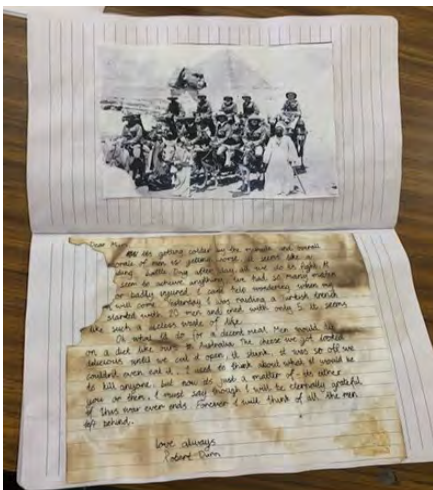 Dear Mum
its getting colder by the minute and overall
morale of men is getting worse. It seems like a
losing battle. Day after day, all we do is fight. It
seem to achieve anything. We had so many
or badly injured. I can't help wondering when my
will come. Yesterday I was raiding a Turkish trench
started with 20 men and ended with only 5. It seems
like such a useless waste of life.
Oh what I'd do for a decent meal. Men would
on a diet like ours in Australia. The cheese we got looked
delicious until we cut it open, it stank, it was so off we
couldn't even eat it. I used to think about what it would be
to kill anyone, but now its just a matter of - its either
you or them. I must say though I will be eternally grateful
if this war ever ends. Forever I will think of all the men
left behind.
love always
Robert Dunn